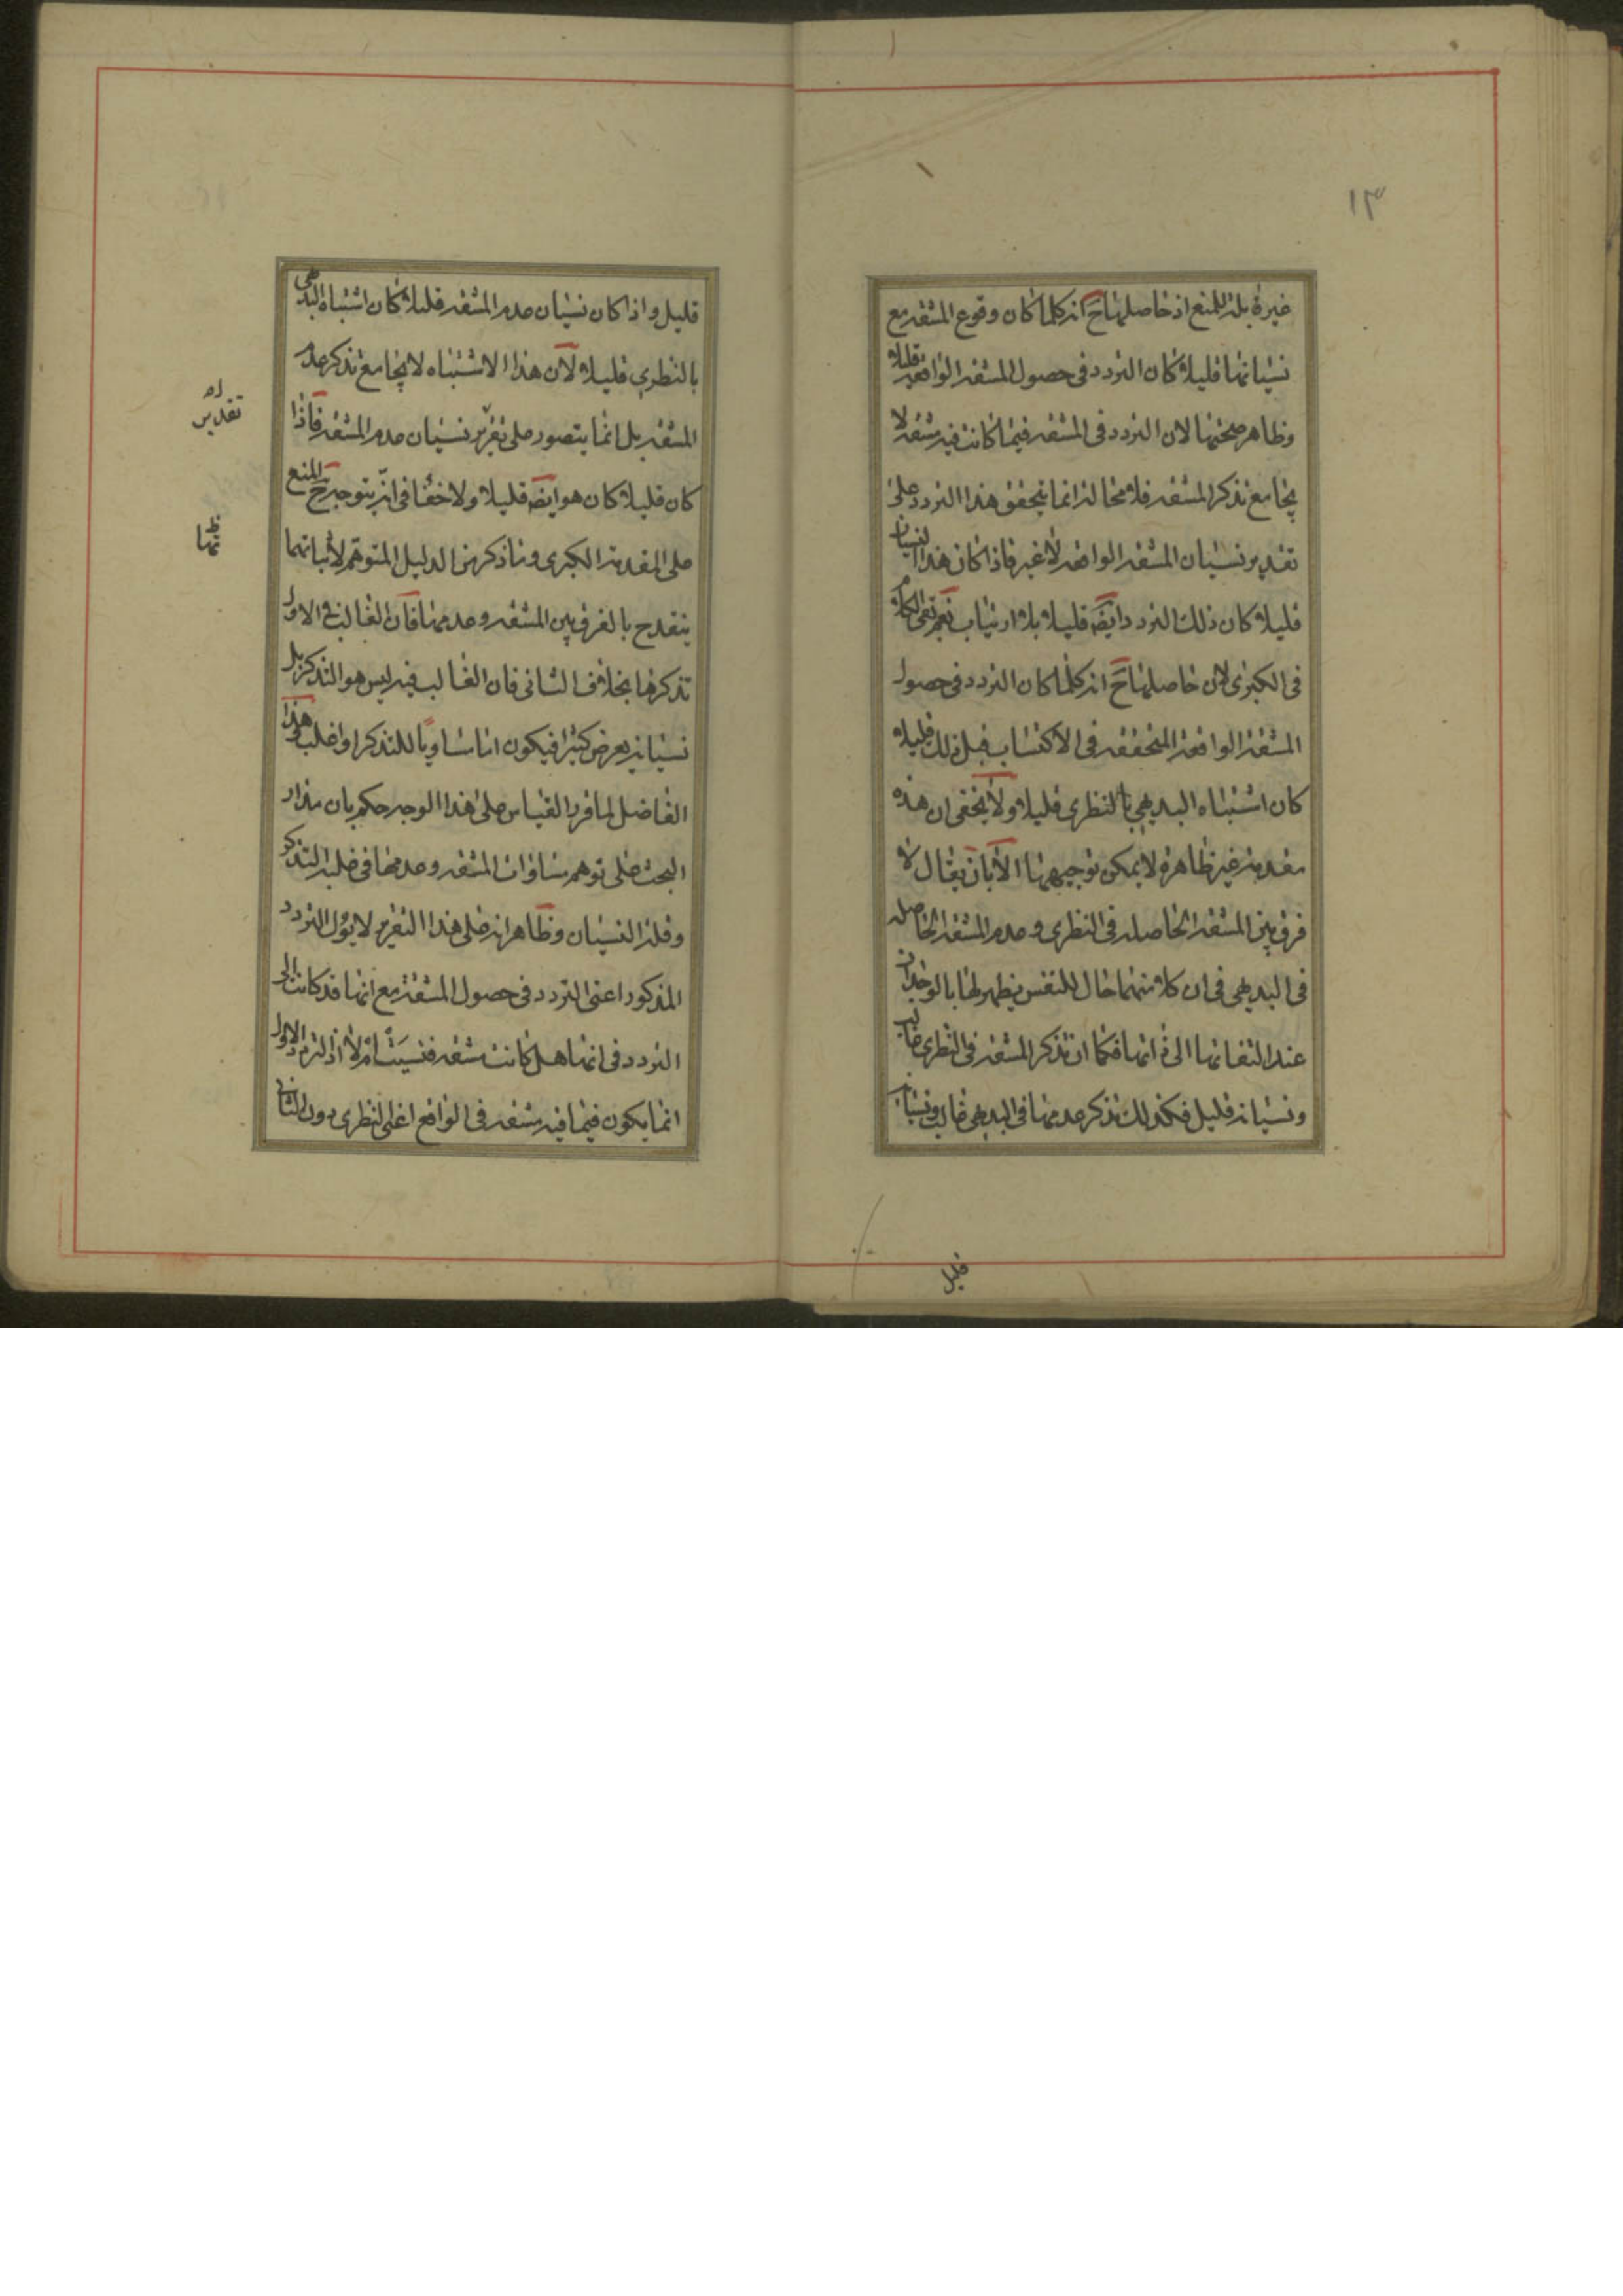 ١٣
غيره بلة للمنع اذ حاصلها ح انه كلما كان وقوع المشقة مع
نسيانها قليلا كان التردد فى حصول المشقة الواقعة قليلا
وظاهر صحتها لان التردد فى المشقة فيما كانت فيه مشقة لا
يجامع تذكر المشقة فلا محالة انما يتحقق هذا التردد على
تقدير نسيان المشقة الواقعة لا غير فاذا كان هذا النسيان
قليلا كان ذلك التردد ايضا قليلا بلا ارتياب نعم بقى الكلام
فى الكبرى لان حاصلها ح انه كلما كان التردد فى حصول
المشقة الواقعة المتحققة فى الاكتساب قبل ذلك قليلا
كان اشتباه البديهي بالنظرى قليلا ولا يخفى ان هذه
مقدمة غير ظاهرة لا يمكن توجيهها الا بان يقال لا
فرق بين المشقة الحاصلة فى النظرى وعدم المشقة الحاصلة
فى البديهى فى ان كلا منهما حال للنفس يظهر لها بالوجدان
عند التفاتها الى ذاتها فكما ان تذكر المشقة فى النظرى غالب
ونسيانه قليل فكذلك تذكر عدمها فى البديهى غالب ونسيانه
قليل
قليل واذا كان نسيان عدم المشقة قليلا كان اشتباه البديهى
بالنظري قليلا لان هذا الاشتباه لا يجامع تذكر عدم
المشقة بل انما يتصور على تقرير نسيان عدم المشقة فاذا
تقدير
كان قليلا كان هو ايضا قليلا ولا خفا فى انه يتوجه ح المنع
على المقدمة الكبرى وما ذكر من الدليل المتوهم لاثباتهما
ينقدح بالفرق بين المشقة وعدمها فان الغالب فى الاول
تذكرها بخلاف الثانى فان الغالب فيه ليس هو التذكر بل
نسيانه يعرض كثيرا فيكون اما مساويا للتذكر او اغلب وهذا
الفاضل لما قرر القياس على هذا الوجه حكم بان مدار
البحث على توهم مساواة المشقة وعدمها فى غلبة التذكر
وقلة النسيان وظاهر انه على هذا التقرير لا يؤل التردد
المذكور اعنى التردد فى حصول المشقة مع انها قد كانت الى
التردد فى انها هل كانت مشقة فنسيت ام لا اذ التردد الاول
انما يكون فيما فيه مشقة فى الواقع اعنى النظرى دون الثانى